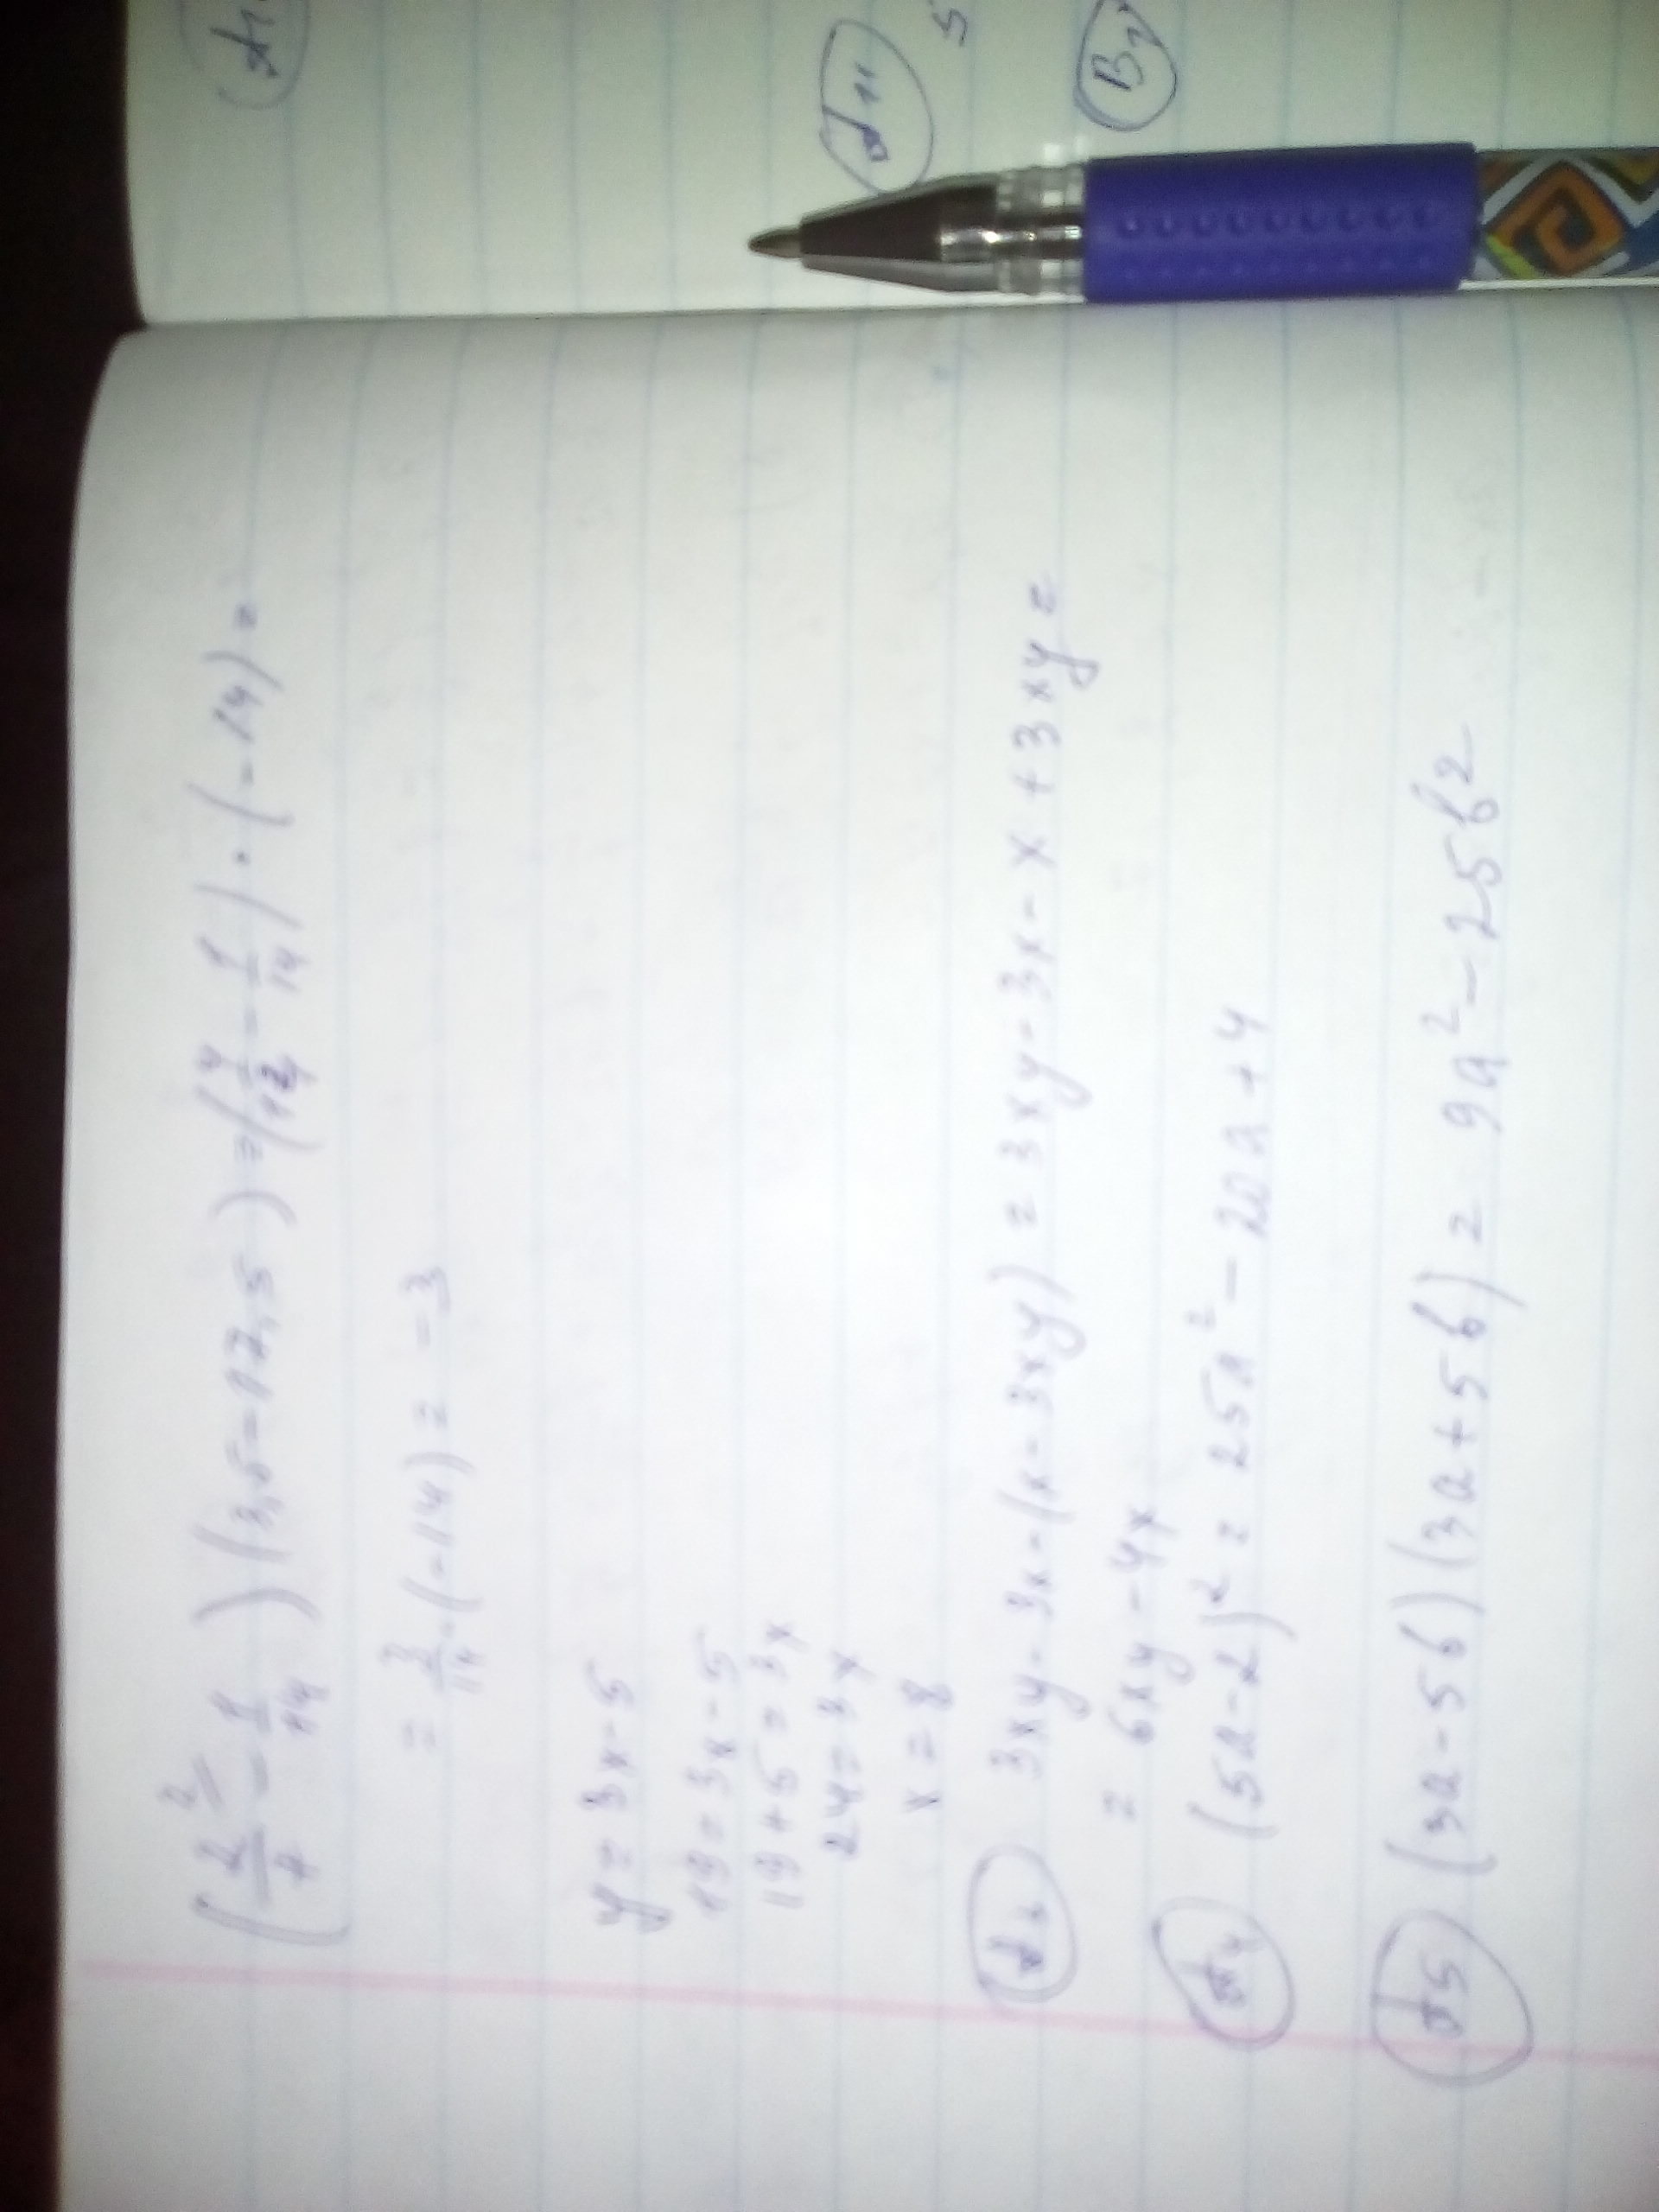 (2/7 - 1/14)(3,5 - 17,5) = (4/14 - 1/14) · (-14) =
= 3/14 · (-14) = -3
y = 3x - 5
19 = 3x - 5
19 + 5 = 3x
24 = 3x
x = 8
3xy - 3x - (x - 3xy) = 3xy - 3x - x + 3xy =
= 6xy - 4x
A4 (5a - 2)² = 25a² - 20a + 4
A5 (3a - 5b)(3a + 5b) = 9a² - 25b²
A11